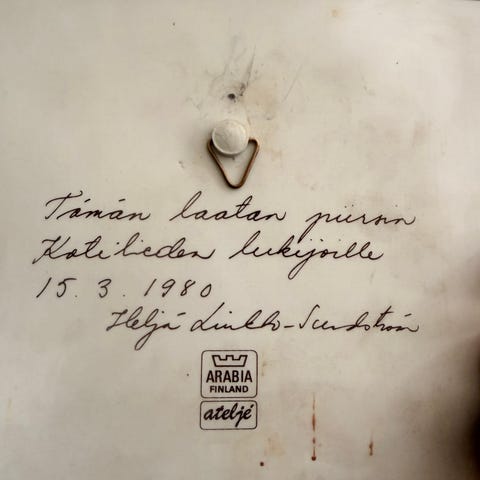 Tämän laatan piirsin
Kotilieden lukijoille
15. 3. 1980
Heljä Liukko-Sundström
ARABIA
FINLAND
ateljé